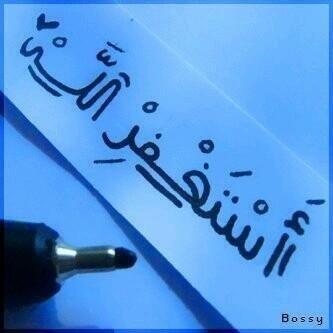 أَسْتَغْفِرُ اللَّه
Bossy